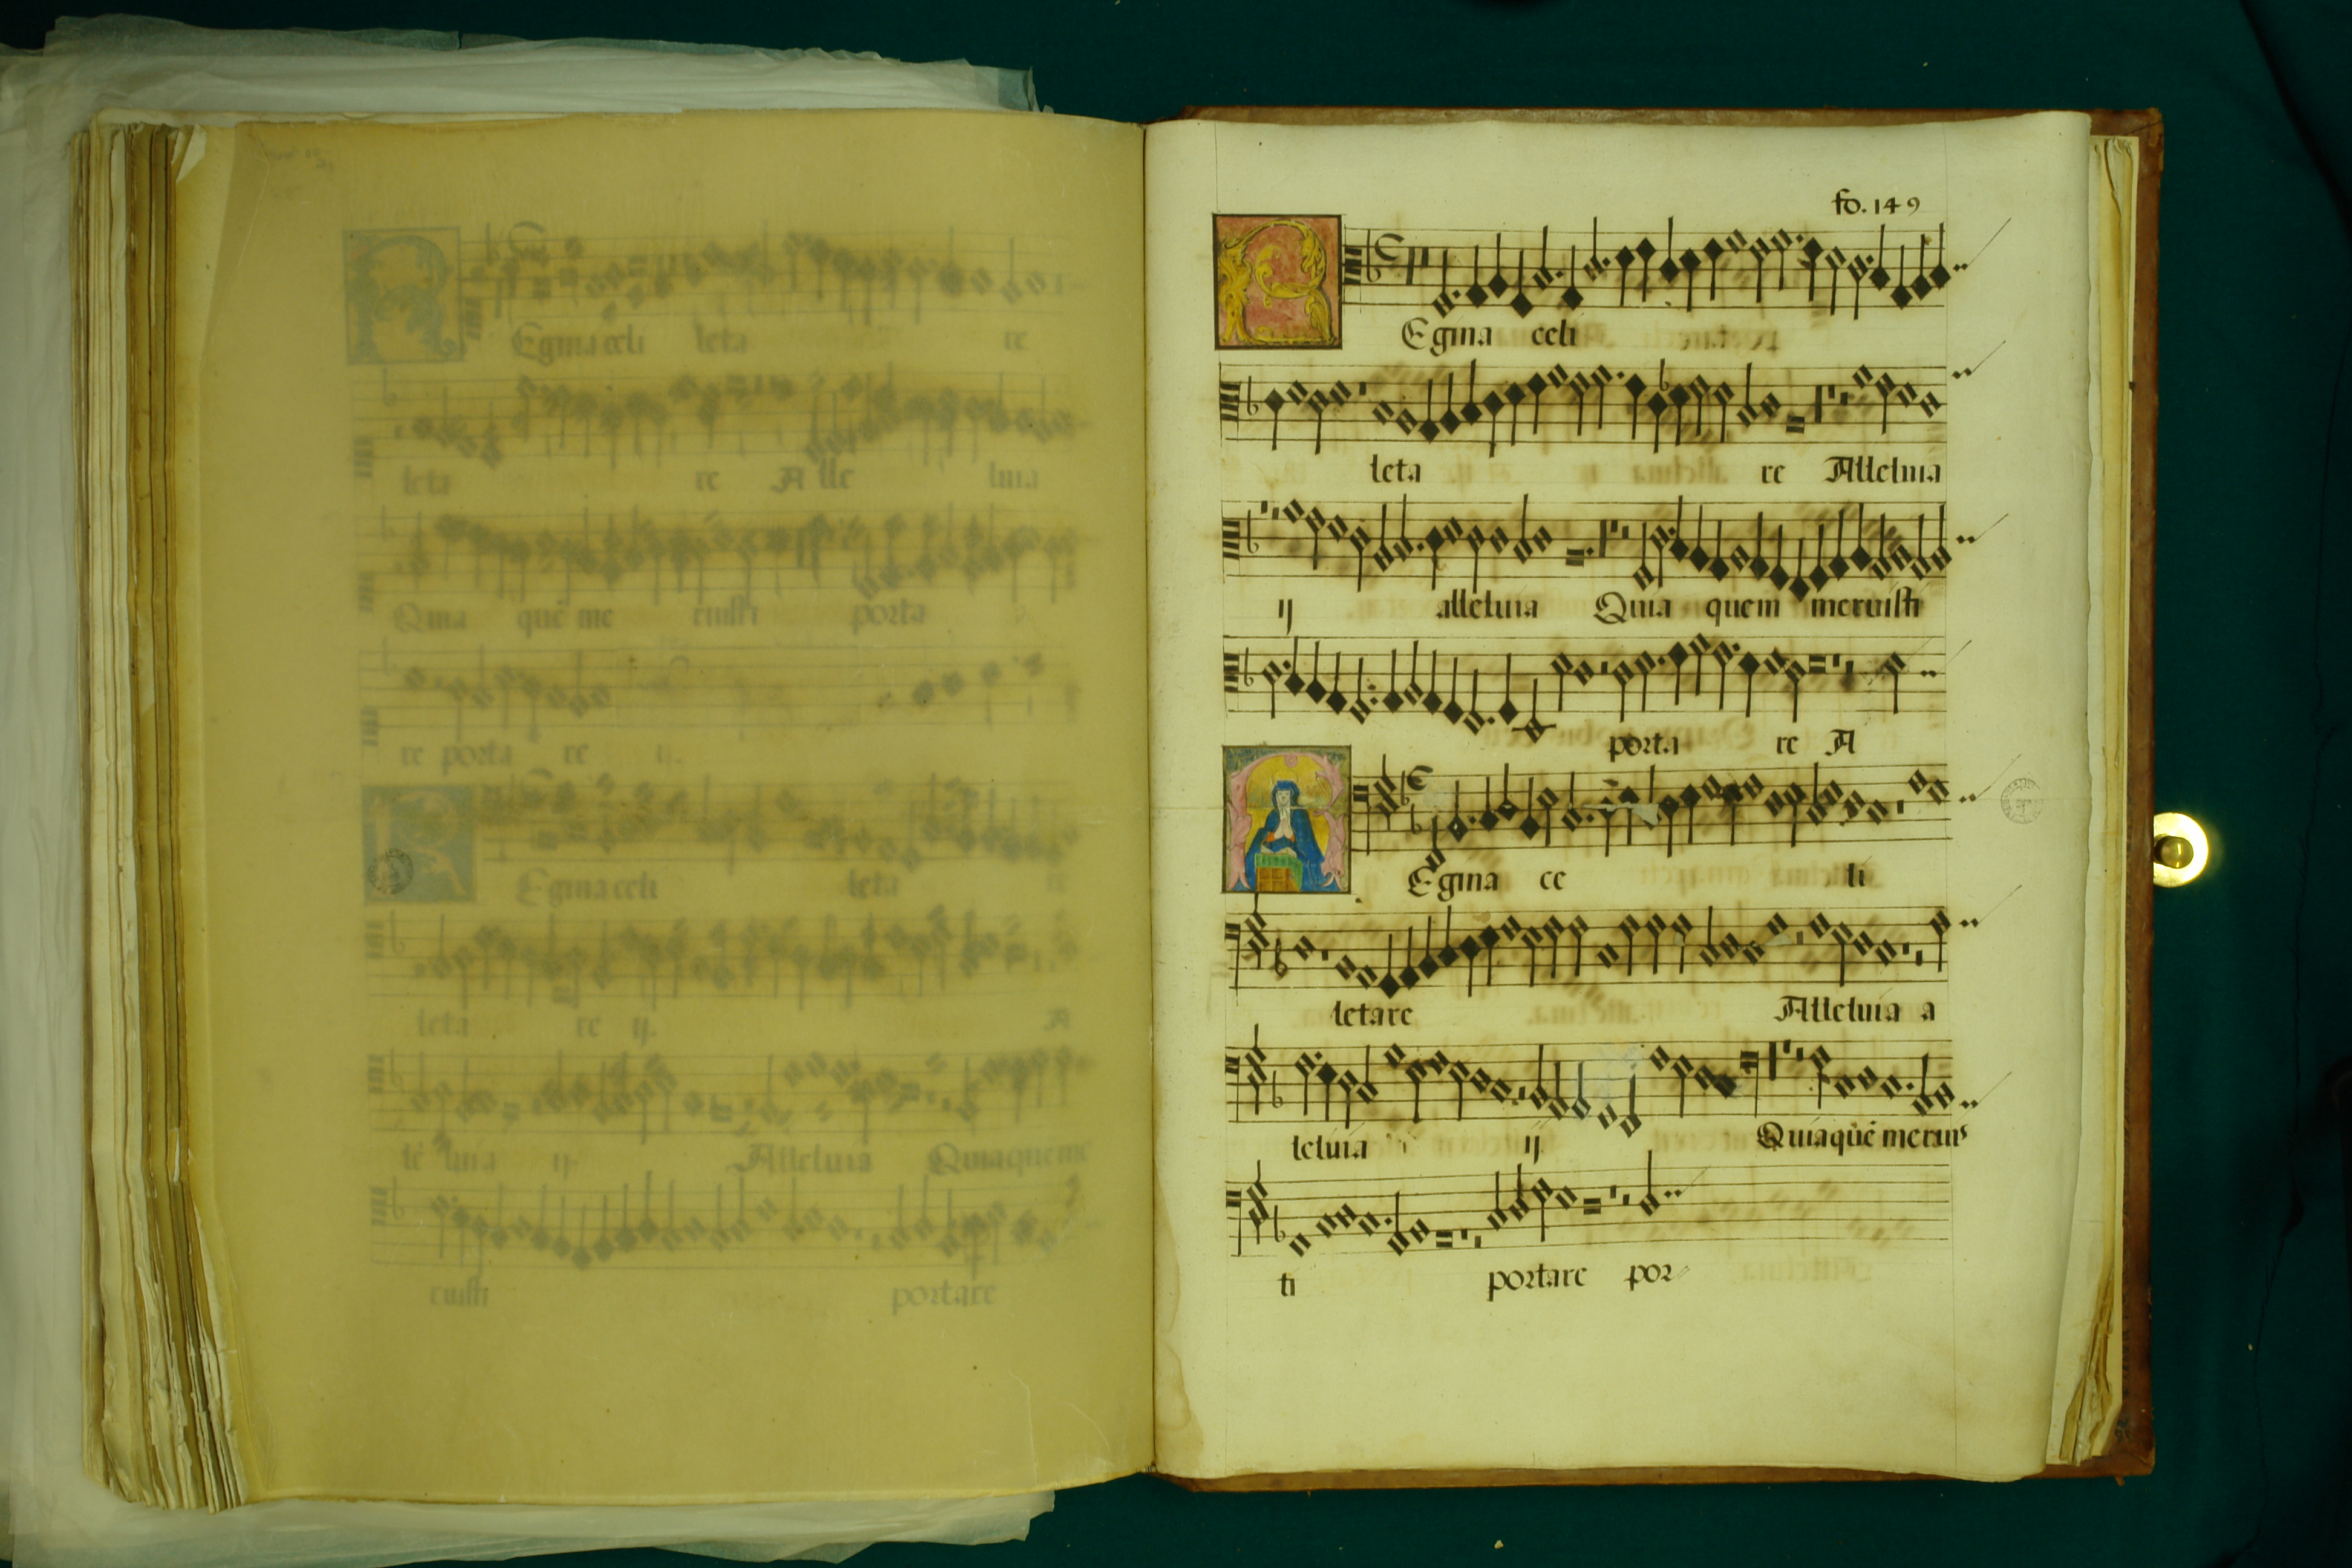 Egina celi leta re
leta re A lle luia
Quia quē me ruisti porta
re porta re ij.
Egina celi leta re
leta re ij. A
le luia ij. Alleluia Quia quem me
ruisti portare
fo. 149
Egina celi
leta re Alleluia
ij alleluia Quia quem meruisti
porta re A
Egina ce li
letare Alleluia a
leluia ij Quia quē meruis
ti portare por